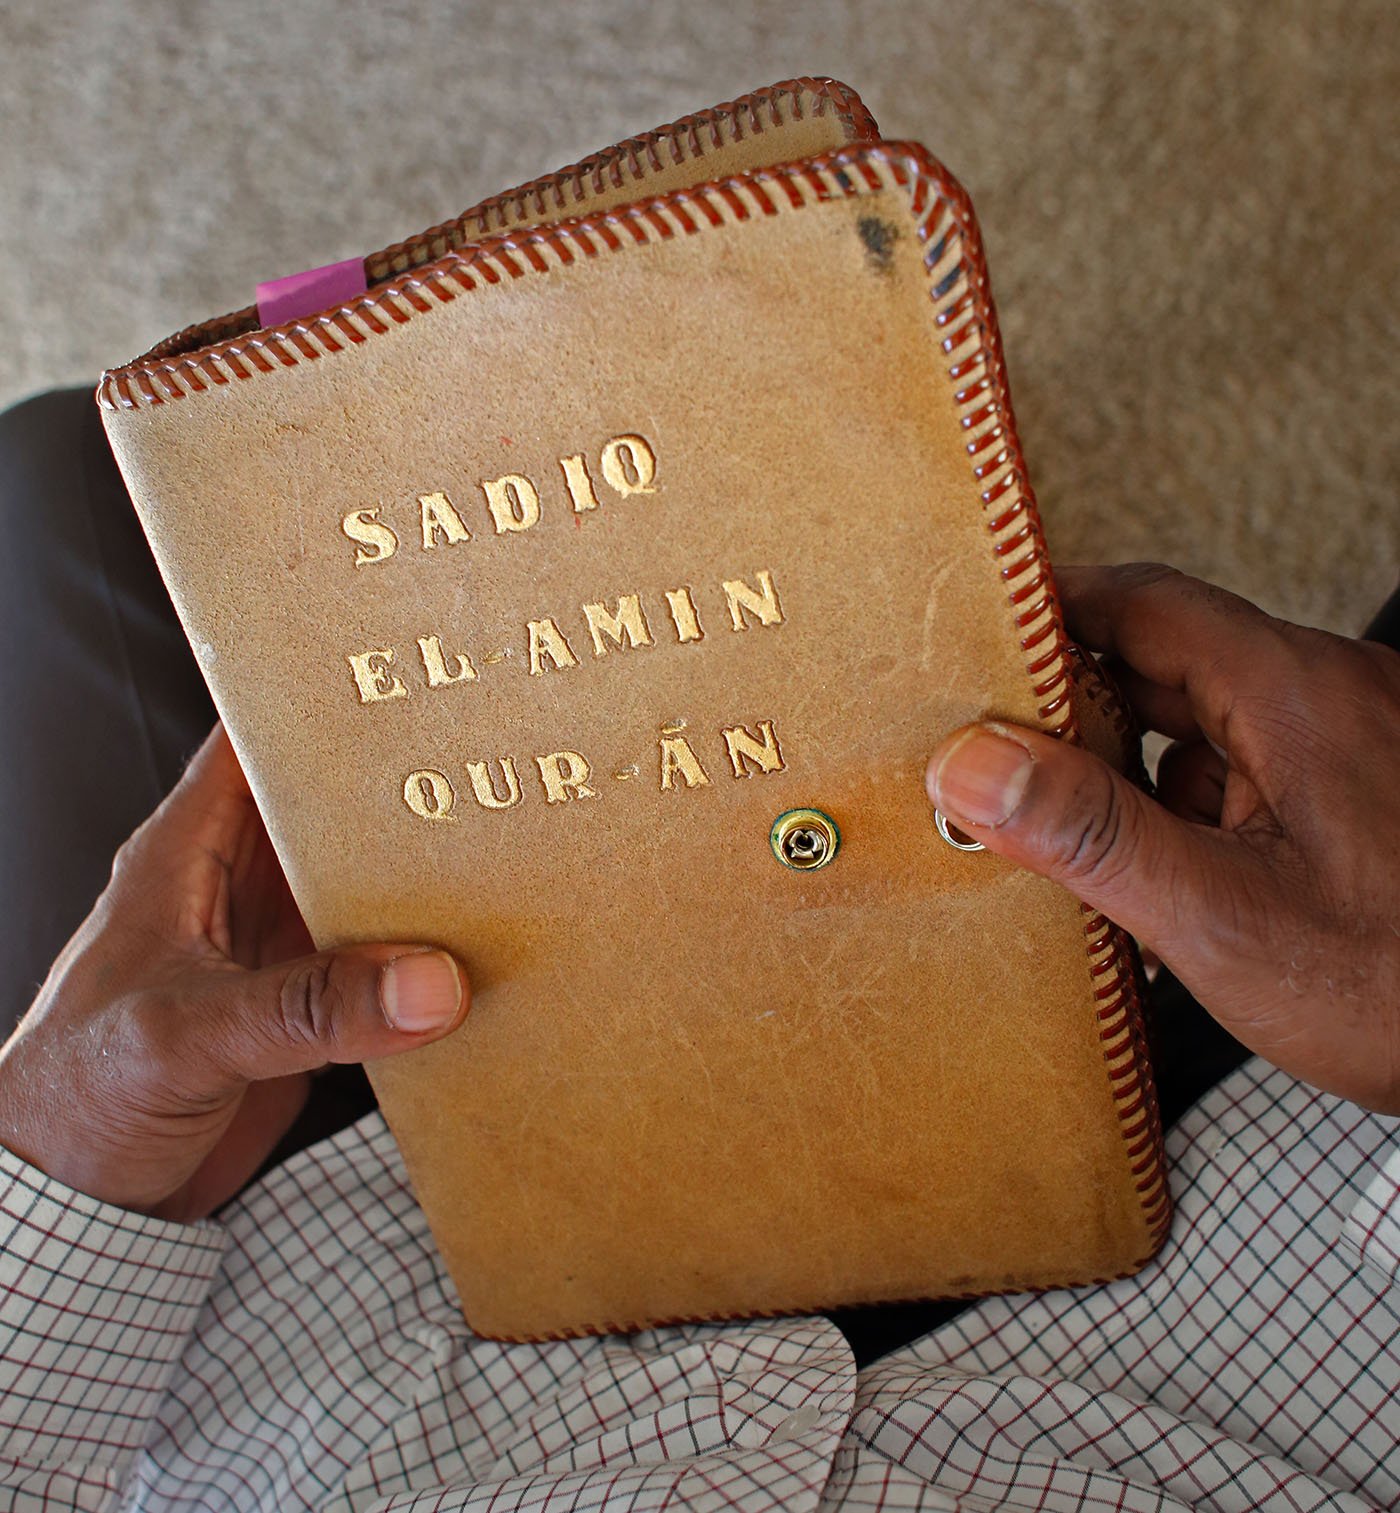 SADIQ
EL-AMIN
QUR-ĀN